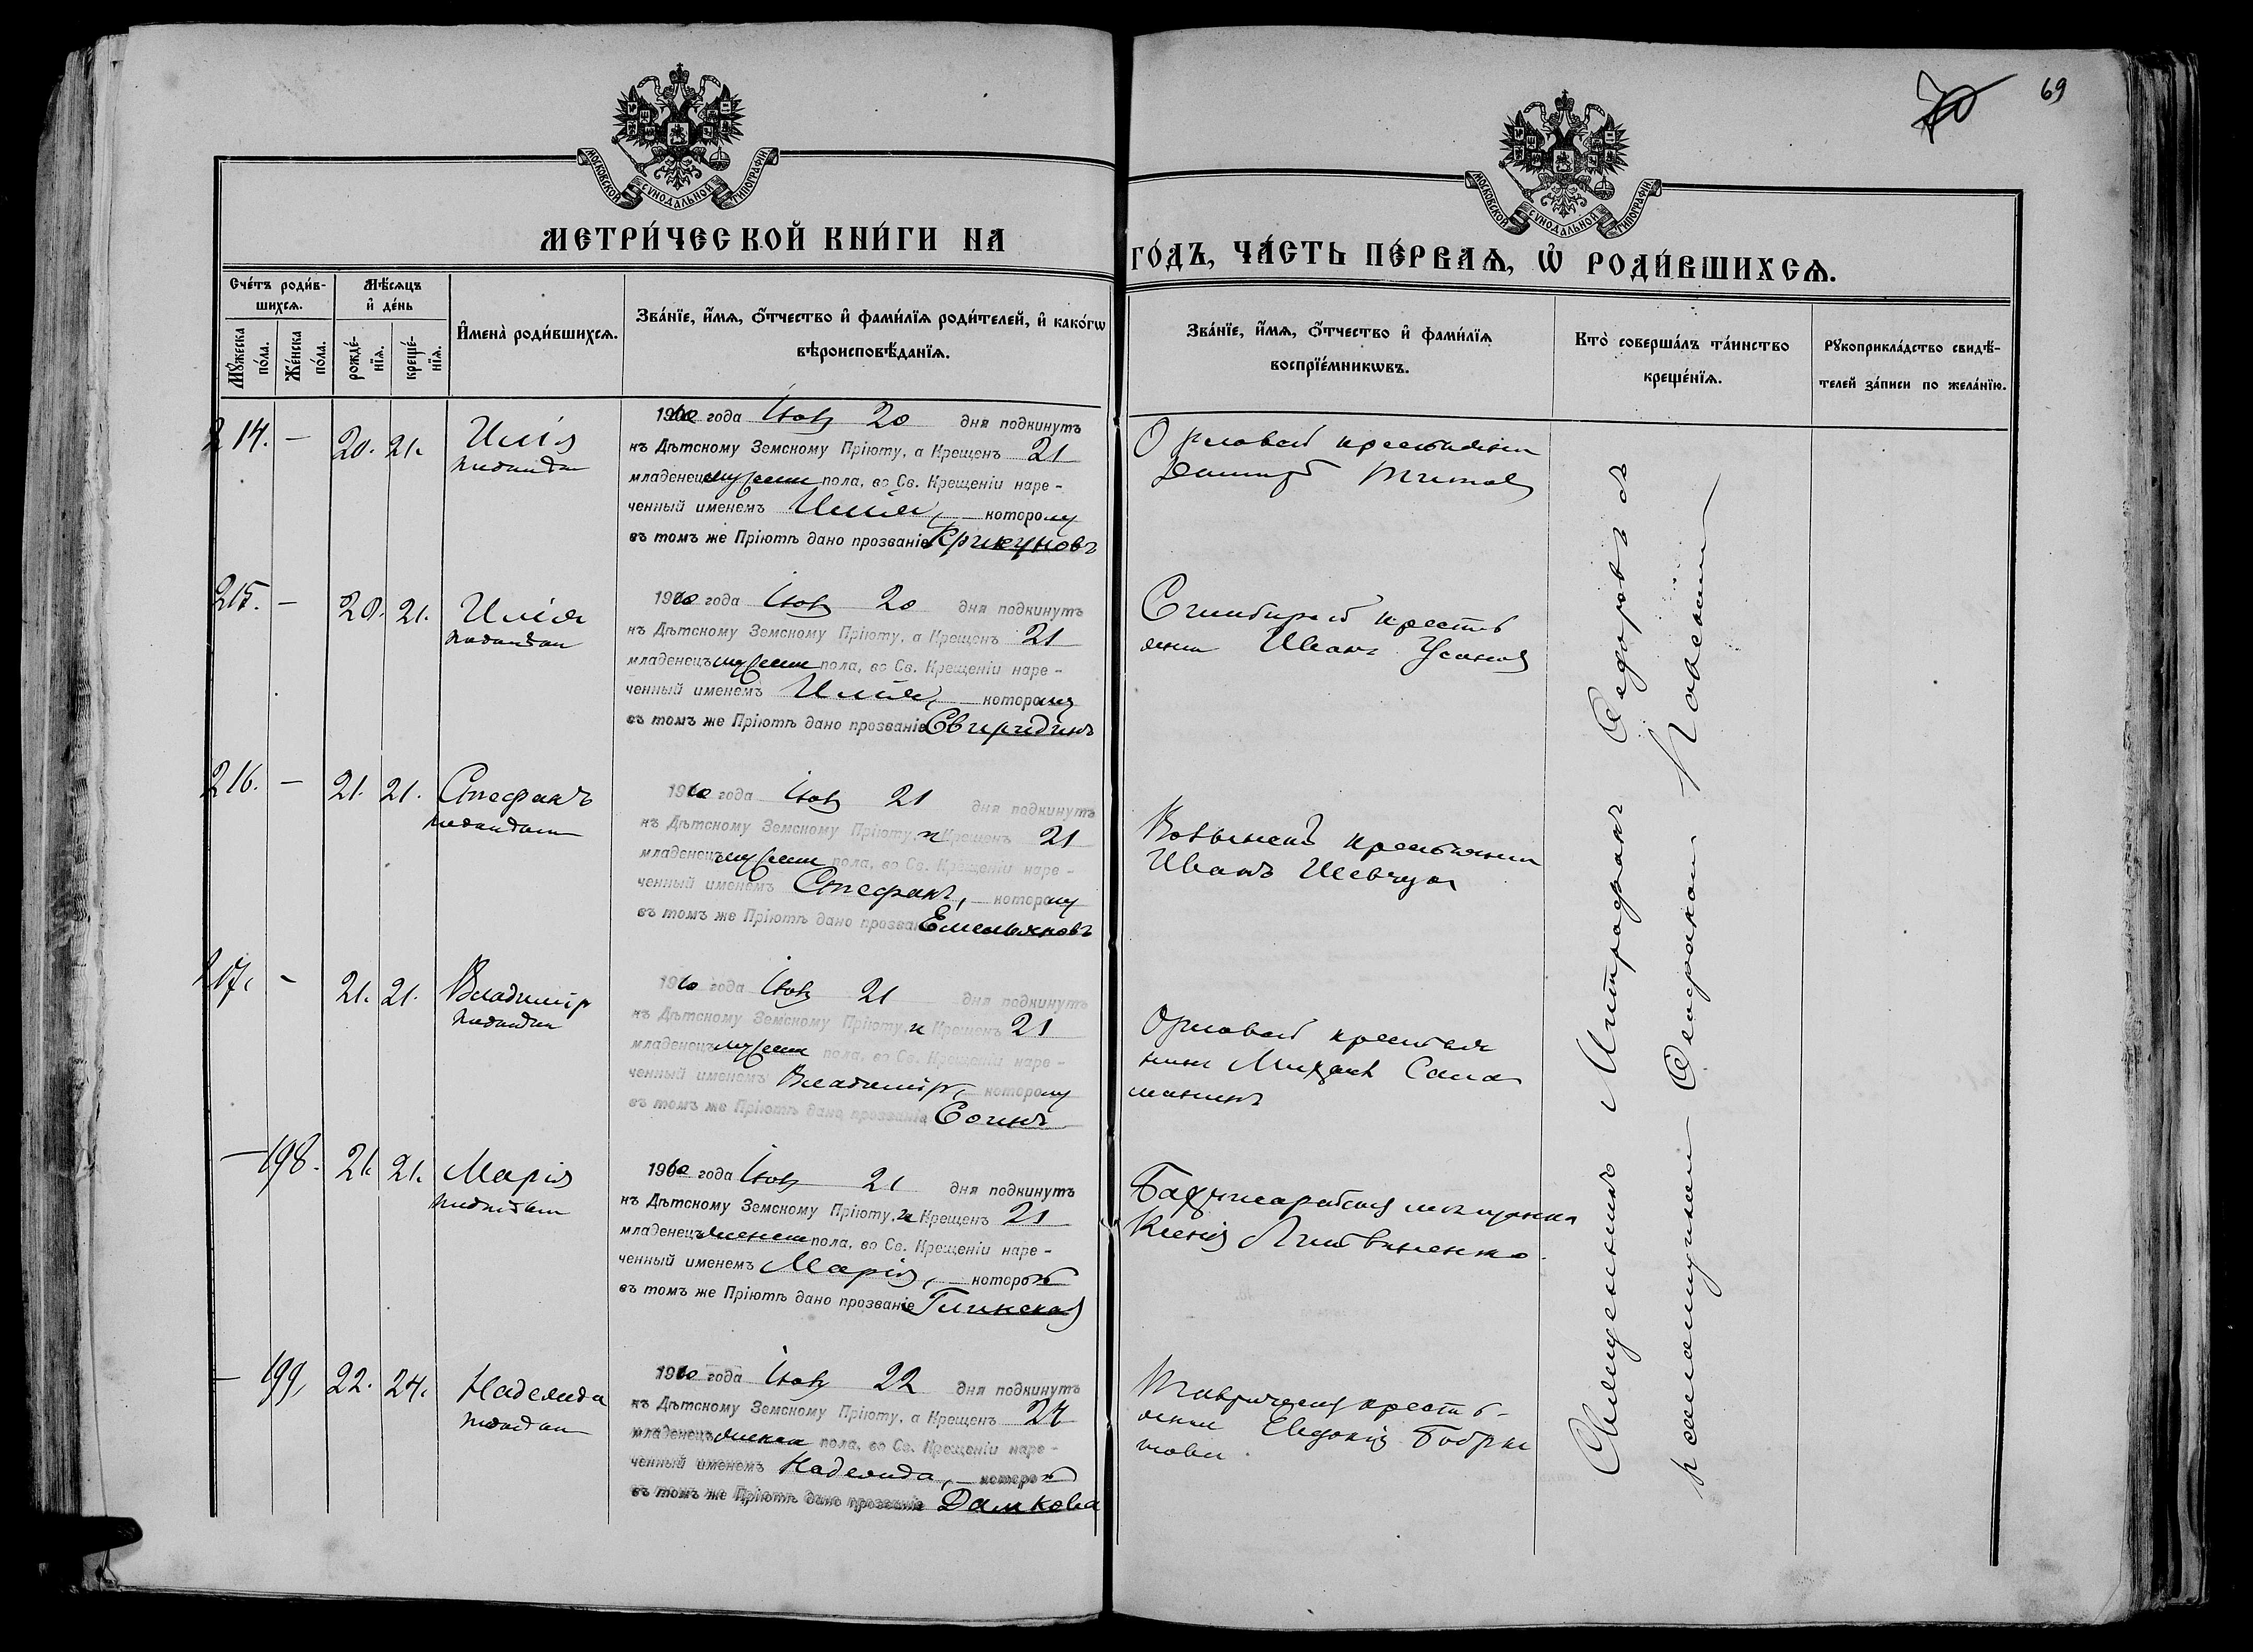 70 69
МОСКОВСКОЙ СУНОДАЛЬНОЙ ТИПОГРАФІИ
МОСКОВСКОЙ СУНОДАЛЬНОЙ ТИПОГРАФІИ
МЕТРИ́ЧЕСКОЙ КНИ́ГИ НА
ГО́ДЪ, ЧА́СТЬ ПЕ́РВАѦ, Ѡ҆ РОДИ́ВШИХСѦ.
Сче́тъ роди́в-
шихсѧ.
Мѣ́сѧцъ
и҆ де́нь
Мꙋ́жеска
по́ла.
Же́нска
по́ла.
рожде́-
нїѧ.
креще́-
нїѧ.
И҆мена̀ роди́вшихсѧ.
Зва́нїе, и҆́мѧ, о҆́тчество и҆ фами́лїѧ роди́телей, и҆ како́гѡ
вѣроисповѣ́данїѧ.
Зва́нїе, и҆́мѧ, о҆́тчество и҆ фами́лїѧ
воспрїе́мникѡвъ.
Кто̀ соверша́лъ та́инство
креще́нїѧ.
Рꙋкоприкла́дство свидѣ́-
телей за́писи по жела́нїю.
214. — 20. 21. Илія
подкидан
1910 года Іюля 20 дня подкинутъ
къ Дѣтскому Земскому Пріюту, а Крещенъ 21
младенецъ мужеска пола, во Св. Крещеніи наре-
ченный именемъ Илія, которому
въ томъ же Пріютѣ дано прозваніе Крикуновъ
Орловской крестьянин
Титов
215. — 20. 21. Илія
подкидан
1910 года Іюля 20 дня подкинутъ
къ Дѣтскому Земскому Пріюту, а Крещенъ 21
младенецъ мужеска пола, во Св. Крещеніи наре-
ченный именемъ Илія, которому
въ томъ же Пріютѣ дано прозваніе Свиридинъ
Симбирской крестья
нин Иванъ Усанов
216. — 21. 21. Стефанъ
подкидан
1910 года Іюля 21 дня подкинутъ
къ Дѣтскому Земскому Пріюту, и Крещенъ 21
младенецъ мужеска пола, во Св. Крещеніи наре-
ченный именемъ Стефанъ, которому
въ томъ же Пріютѣ дано прозваніе Емельяновъ
Волынской крестьянин
Иванъ Шевчук
217. — 21. 21. Владиміръ
подкидан
1910 года Іюля 21 дня подкинутъ
къ Дѣтскому Земскому Пріюту, и Крещенъ 21
младенецъ мужеска пола, во Св. Крещеніи наре-
ченный именемъ Владиміръ, которому
въ томъ же Пріютѣ дано прозваніе Сочинъ
Орловской крестья
нин Михаил Сала
манинъ
— 198. 21. 21. Марія
подкидан
1910 года Іюля 21 дня подкинутъ
къ Дѣтскому Земскому Пріюту, и Крещенъ 21
младенецъ женска пола, во Св. Крещеніи наре-
ченный именемъ Марія, которой
въ томъ же Пріютѣ дано прозваніе Глинская
Бахчисарайская мещанка
Ксенія Литвиненко.
— 199. 22. 24. Надежда
подкидан
1910 года Іюля 22 дня подкинутъ
къ Дѣтскому Земскому Пріюту, а Крещенъ 24
младенецъ женска пола, во Св. Крещеніи наре-
ченный именемъ Надежда, которой
въ томъ же Пріютѣ дано прозваніе Дамкова
Таврическая кресть-
янка Евдокія Бобри
кова
Священникъ Митрофанъ Федоровъ съ
псаломщикомъ Феофаномъ